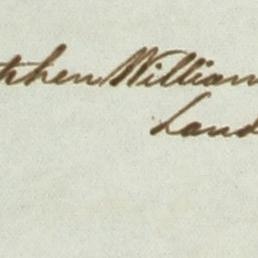 tephen William
Land